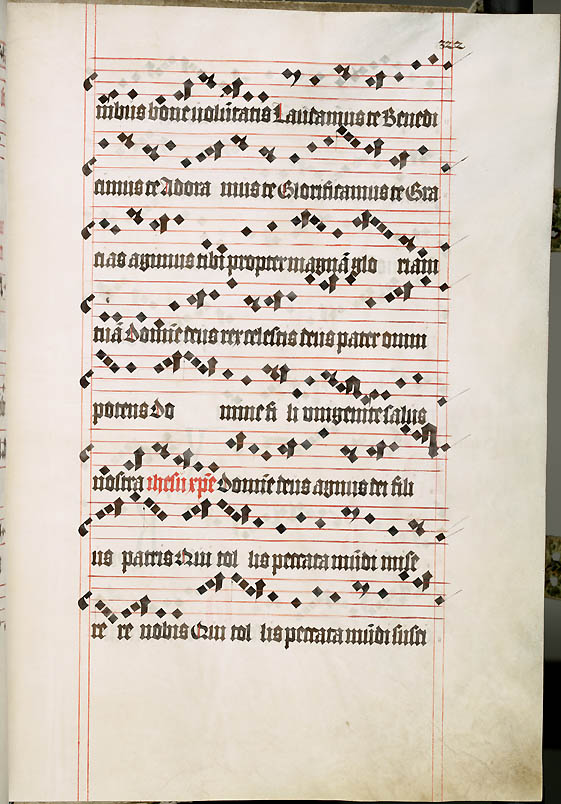 322
nibus bone volūtatis Laudamus te Benedi
cimus te Adora mus te Glorificamus te Gra
cias agimus tibi propter magnā glo riam
tuā Domīe deus rex celestis deus pater omni
potens Do mine fi li vnigenite salus
nostra ihesu xpē Domīe deus agnus dei fili
us patris Qui tol lis peccata mūdi mise
re re nobis Qui tol lis peccata mūdi susci